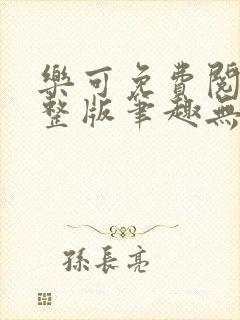 樂可免費閱
整版筆趣無
孫長亮